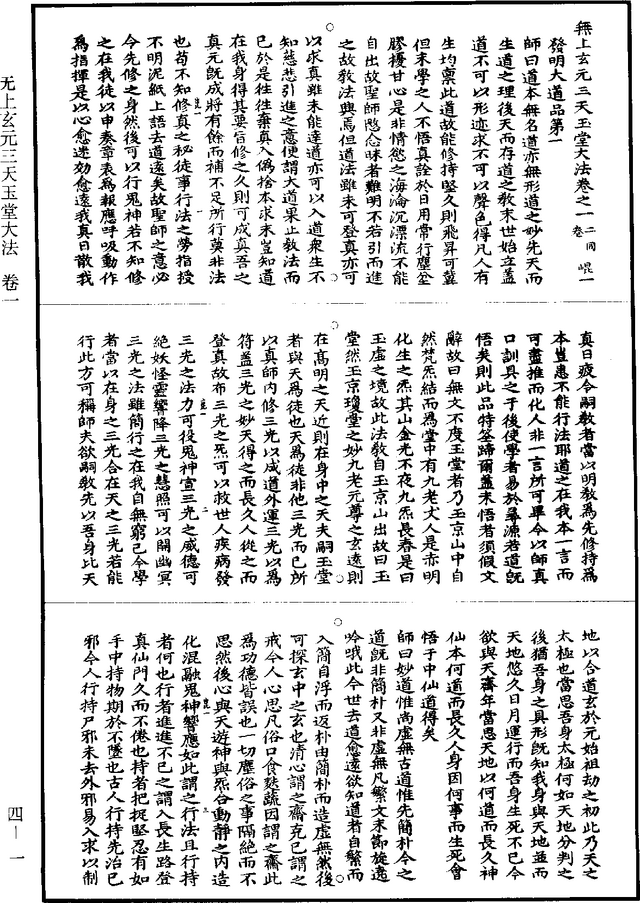 無上玄元三天玉堂大法卷之一 二同卷 崐一
發明大道品第一
師曰道本無名道亦無形道之妙先天而
生道之理後天而存道之教末世始立蓋
道不可以形迹求不可以聲色得凡人有
生均稟此道故能修持堅久則飛昇可冀
但末學之人不悟真詮於日用常行塵坌
膠擾甘心是非情慾之海淪沉漂流不能
自出故聖師愍念昧者難明不若引而進
之故教法興焉但道法雖未可登真亦可
以求真雖未能達道亦可以入道衆生不
知慈悲引進之意便謂大道果止教法而
已於是往往棄真入僞捨本求末豈知道
在我身得其要旨修之久則可成真吾之
真元既成將有餘而補不足所行莫非法
也苟不知修真之祕徒事行法之勞指授
不明泥紙上語去道遠矣故聖師之意必
令先修之身然後可以行鬼神若不知修
之在我徒以申奏章表為報應呼吸動作
為指揮是以心愈迷効愈遠我真日散我
真日疲今嗣教者當以明教為先修持為
本豈患不能行法耶道之在我本一言而
可盡推而化人非一言所可畢今以師真
口訓具之于後使學者易於尋源若道既
悟矣則此品特筌蹄爾蓋未悟者須假文
辭故曰無文不度玉堂者乃玉京山中自
然梵炁結而為堂中有九老丈人是亦明
化生之炁其山金光不夜九炁長春是曰
玉虛之境故此法教自玉京山出故曰玉
堂然玉京瓊堂之妙九老元尊之玄遠則
在高明之天近則在身中之天夫嗣玉堂
者與天為徒也天為徒非他三光而已所
以真師内修三光以成道外運三光以為
符蓋三光之妙天得之而長久人從之而
登真故布三光之炁可以救世人疾病發
三光之法力可役鬼神宣三光之威德可
絶妖怪靈響降三光之慧照可以開幽冥
三光之法雖簡行之在我自無窮已今學
者當以在身之三光合在天之三光若能
行此方可稱師夫欲嗣教先以吾身比天
地以合道玄於元始祖劫之初此乃天之
太極也當思吾身太極何如天地分判之
後猶吾身之具形既知我身與天地並而
天地悠久日月運行而吾身生死不已今
欲與天齊年當思天地以何道而長久神
仙本何道而長久人身因何事而生死會
悟于中仙道得矣
師曰妙道惟尚虛無古道惟先簡朴今之
道既非簡朴又非虛無凡繁文末節旋遶
吟哦此今世去道愈遠欲知道者自繁而
入簡自浮而返朴由簡朴而造虛無然後
可探玄中之玄也清心謂之齋克已謂之
戒今人心思凡俗口食麩蔬因謂之齋此
為功德皆誤也一切塵俗之事隔絶而不
思然後心與天遊神與炁合動靜之内造
化混融鬼神響應如此謂之行法且行持
者何也行者進進不已之謂入長生路登
真仙門久而不倦也持者把捉堅忍有如
手中持物期於不墜也古人行持先治已
邪今人行持尸邪未去外邪易入求以制
无上玄元三天玉堂大法 卷一
四—一